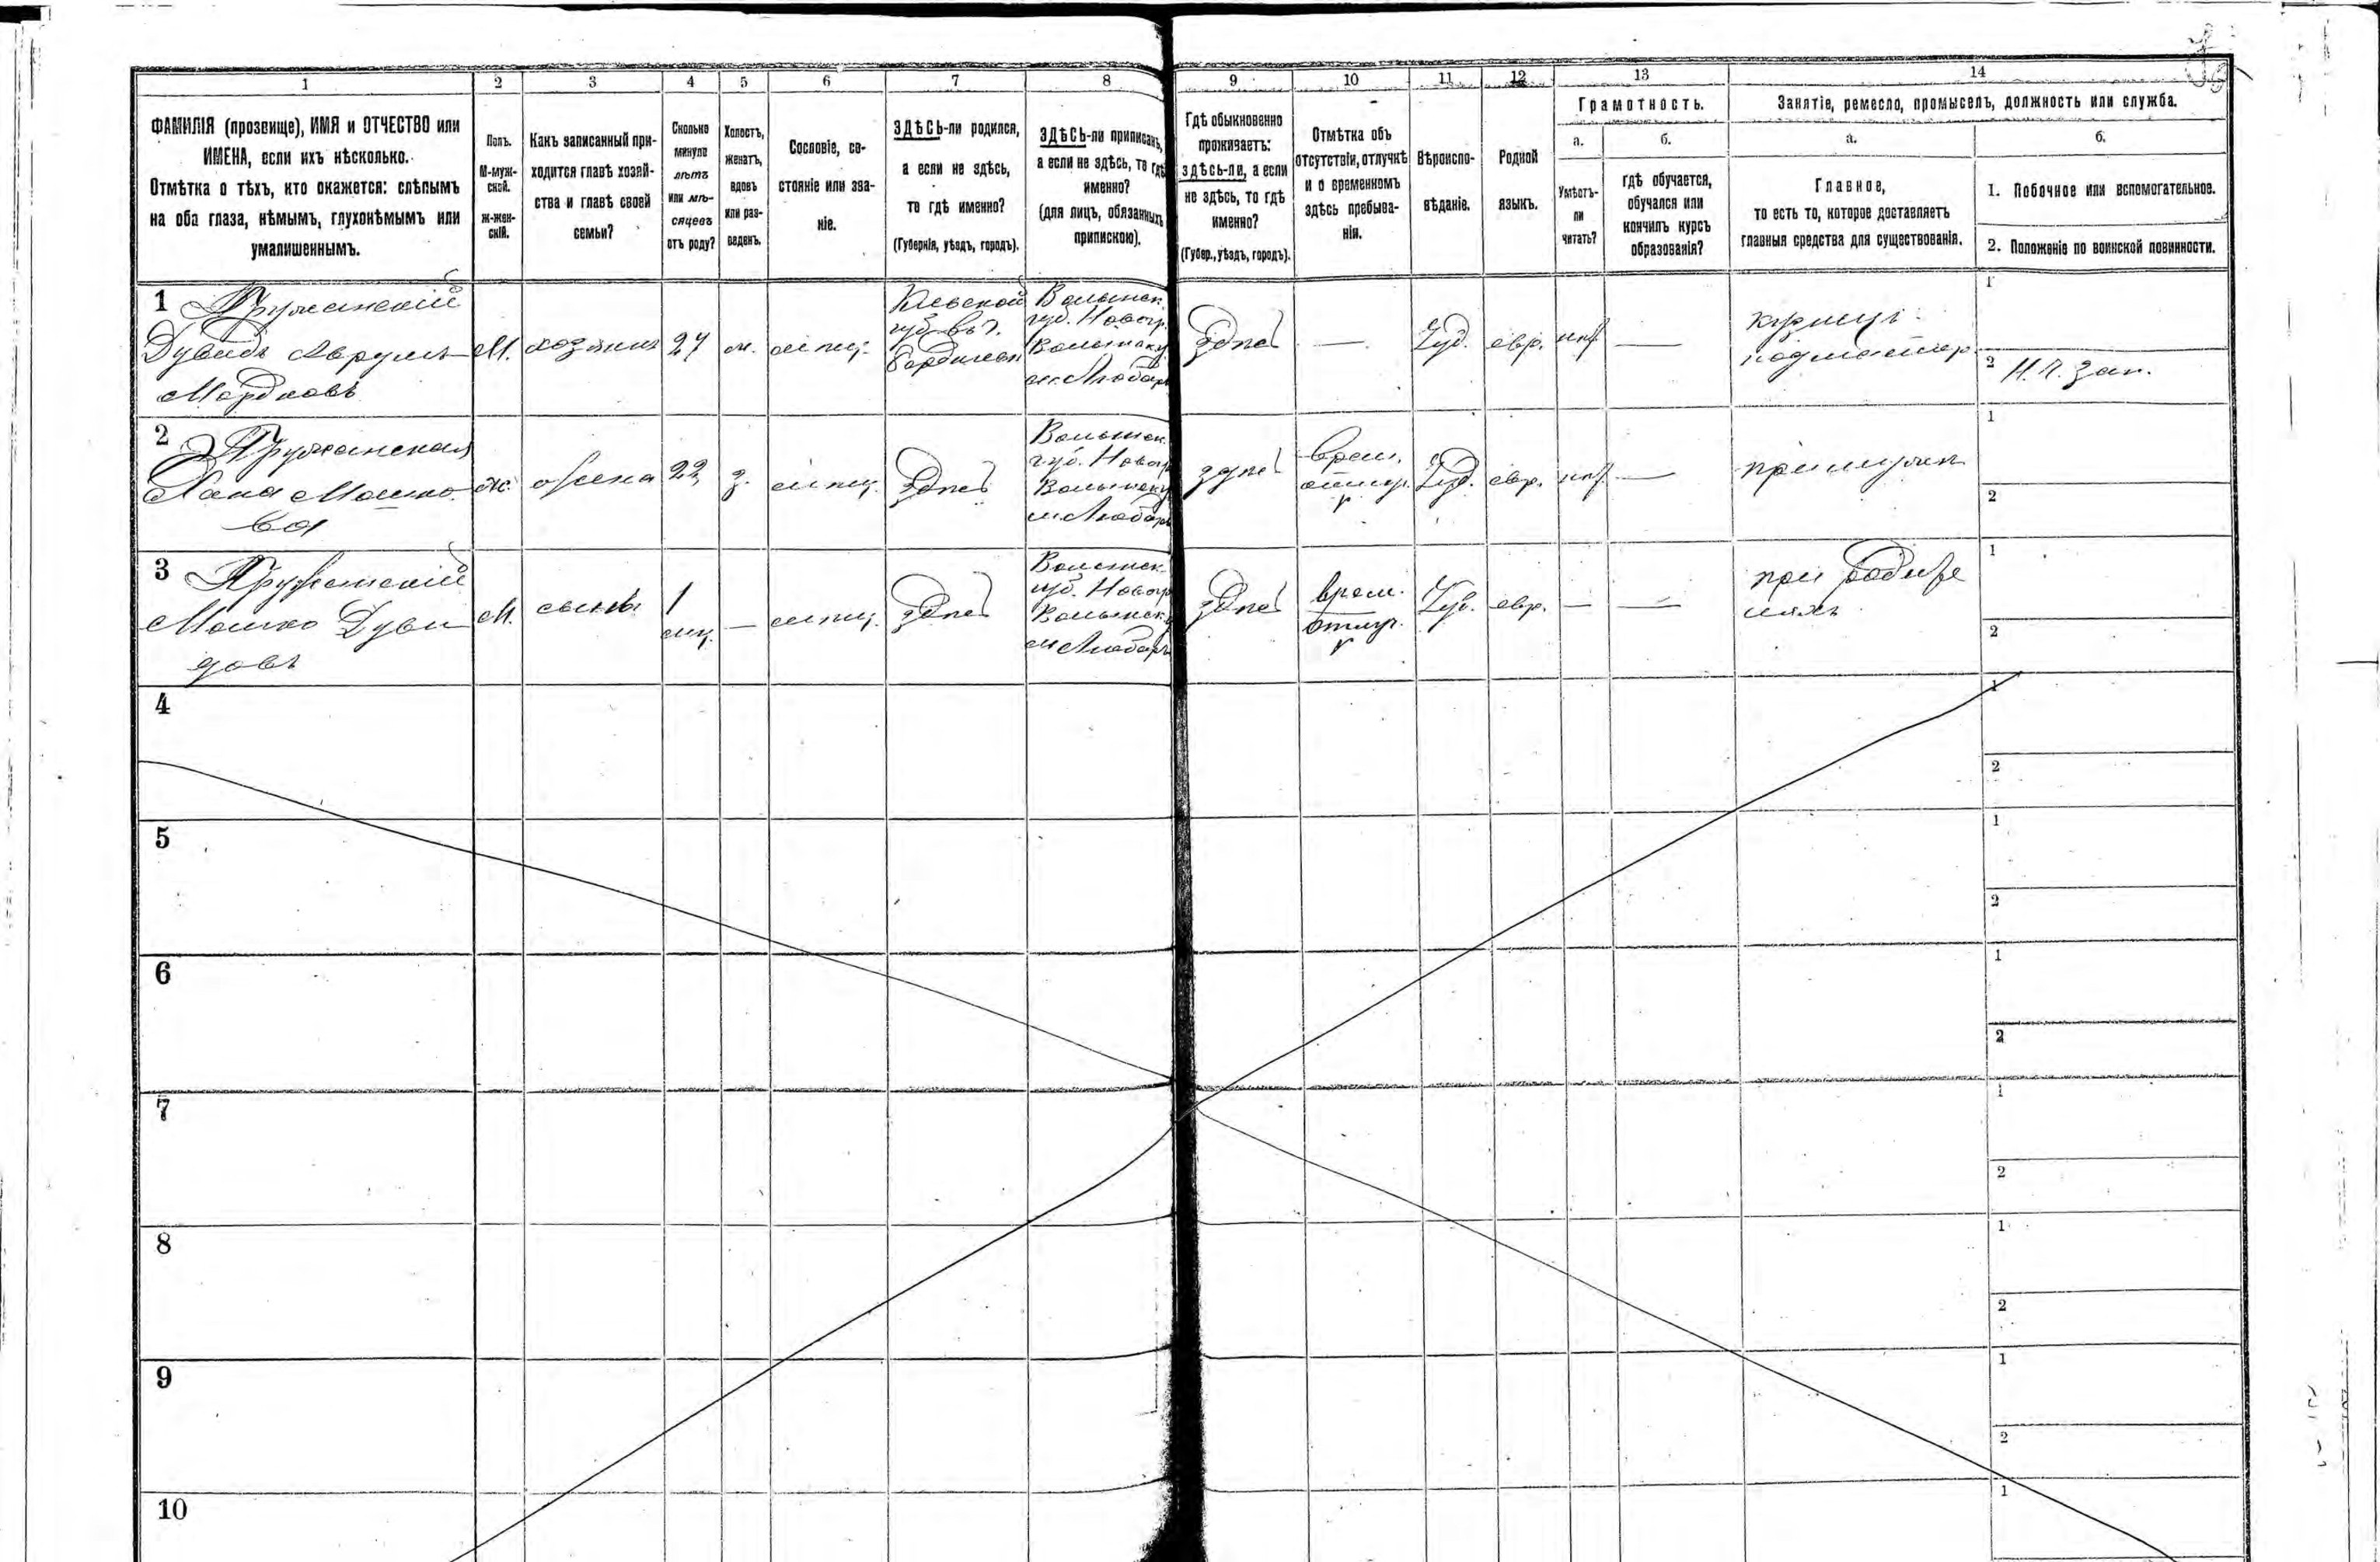 1 2 3 4 5 6 7 8 9 10 11 12 13 14
ФАМИЛІЯ (прозвище), ИМЯ и ОТЧЕСТВО или
ИМЕНА, если ихъ нѣсколько.
Отмѣтка о тѣхъ, кто окажется: слѣпымъ
на оба глаза, нѣмымъ, глухонѣмымъ или
умалишеннымъ.
Полъ.
М-муж-
ской.
ж-жен-
скій.
Какъ записанный при-
ходится главѣ хозяй-
ства и главѣ своей
семьи?
Сколько
минуло
лѣтъ
или мѣ-
сяцевъ
отъ роду?
Холостъ,
женатъ,
вдовъ
или раз-
веденъ.
Сословіе, со-
стояніе или зва-
ніе.
ЗДѢСЬ-ли родился,
а если не здѣсь,
то гдѣ именно?
(Губернія, уѣздъ, городъ).
ЗДѢСЬ-ли приписанъ,
а если не здѣсь, то гдѣ
именно?
(для лицъ, обязанныхъ
припискою).
Гдѣ обыкновенно
проживаетъ:
здѣсь-ли, а если
не здѣсь, то гдѣ
именно?
(Губер., уѣздъ, городъ).
Отмѣтка объ
отсутствіи, отлучкѣ
и о временномъ
здѣсь пребыва-
ніи.
Вѣроиспо-
вѣданіе.
Родной
языкъ.
Грамотность.
а.
Умѣетъ-
ли
читать?
б.
гдѣ обучается,
обучался или
кончилъ курсъ
образованія?
Занятіе, ремесло, промыселъ, должность или служба.
а.
Главное,
то есть то, которое доставляетъ
главныя средства для существованія.
б.
1. Побочное или вспомогательное.
2. Положеніе по воинской повинности.
1 Пружанскій
Дувидъ Аврумъ
Мордковъ
М.
хозяинъ
24
ж.
мѣщ.
Кіевской
губ.
Бердичев
Волынск.
губ. Новогр.
Волынску
м. Любарѣ
здѣсь
—
Іуд.
евр.
нѣт
—
кузнец
подмастер.
1
2 Н. Р. зап.
2 Пружанская
Хана Мошко-
ва
ж.
жена
22
з.
мѣщ.
здѣсь
Волынск.
губ. Новогр
Волынску
м. Любарѣ
здѣсь
врем.
отлуч.
Іуд.
евр.
нѣт
—
при мужѣ
1
2
3 Пружанскій
Мошко Дуви
довъ
М.
сынъ
1
мѣц.
—
мѣщ.
здѣсь
Волынск.
губ. Новогр
Волынск.
м. Любарѣ
здѣсь
врем.
отлуч.
Іуд.
евр.
—
—
при родите
ляхъ
1
2
4
1
2
5
1
2
6
1
2
7
1
2
8
1
2
9
1
2
10
1